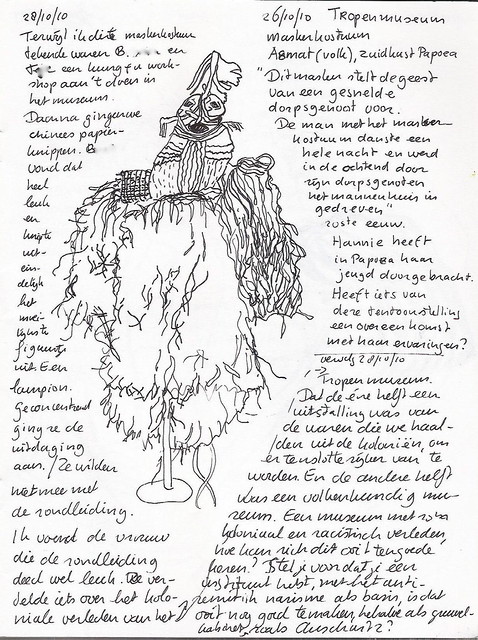 28/10/10
Terwijl ik dit maskerkostuum
tekende waren B. en
een kung fu work-
shop aan 't doen in
het museum.
Daarna gingen we
chinees papier-
knippen. B
vond dat
heel
leuk
en
knipte
uit-
ein-
delijk
het
moei-
lijkste
figuurtje
uit. Een
lampion.
Geconcentreerd
ging ze de
uitdaging
aan. / Ze wilden
niet mee met
de rondleiding.
Ik vond de vrouw
die de rondleiding
deed wel leuk. Ze ver-
telde iets over het kolo-
niale verleden van het
26/10/10 Tropenmuseum
maskerkostuum
Asmat (volk), zuidkust Papoea
"Dit masker stelt de geest
van een gesnelde
dorpsgenoot voor.
De man met het masker
kostuum danste een
hele nacht en werd
in de ochtend door
zijn dorpsgenoten
het mannenhuis in
gedreven"
20ste eeuw.
Hannie heeft
in Papoea haar
jeugd doorgebracht.
Heeft iets van
deze tentoonstelling
een overeenkomst
met haar ervaringen?
vervolg 28/10/10
Tropenmuseum.
Dat de ene helft een
uitstalling was van
de waren die we haal-
den uit de koloniën, om
er tenslotte rijker van te
worden. En de andere helft
was een volkenkundig mu-
seum. Een museum met zo'n
koloniaal en racistisch verleden,
hoe kan zich dit ooit ten goede
keren? Stel je voor dat je een
instituut hebt, met het anti-
semitisch nazisme als basis, is dat
ooit nog goed te maken, behalve als gruwel-
kabinet, zoals Auschwitz?